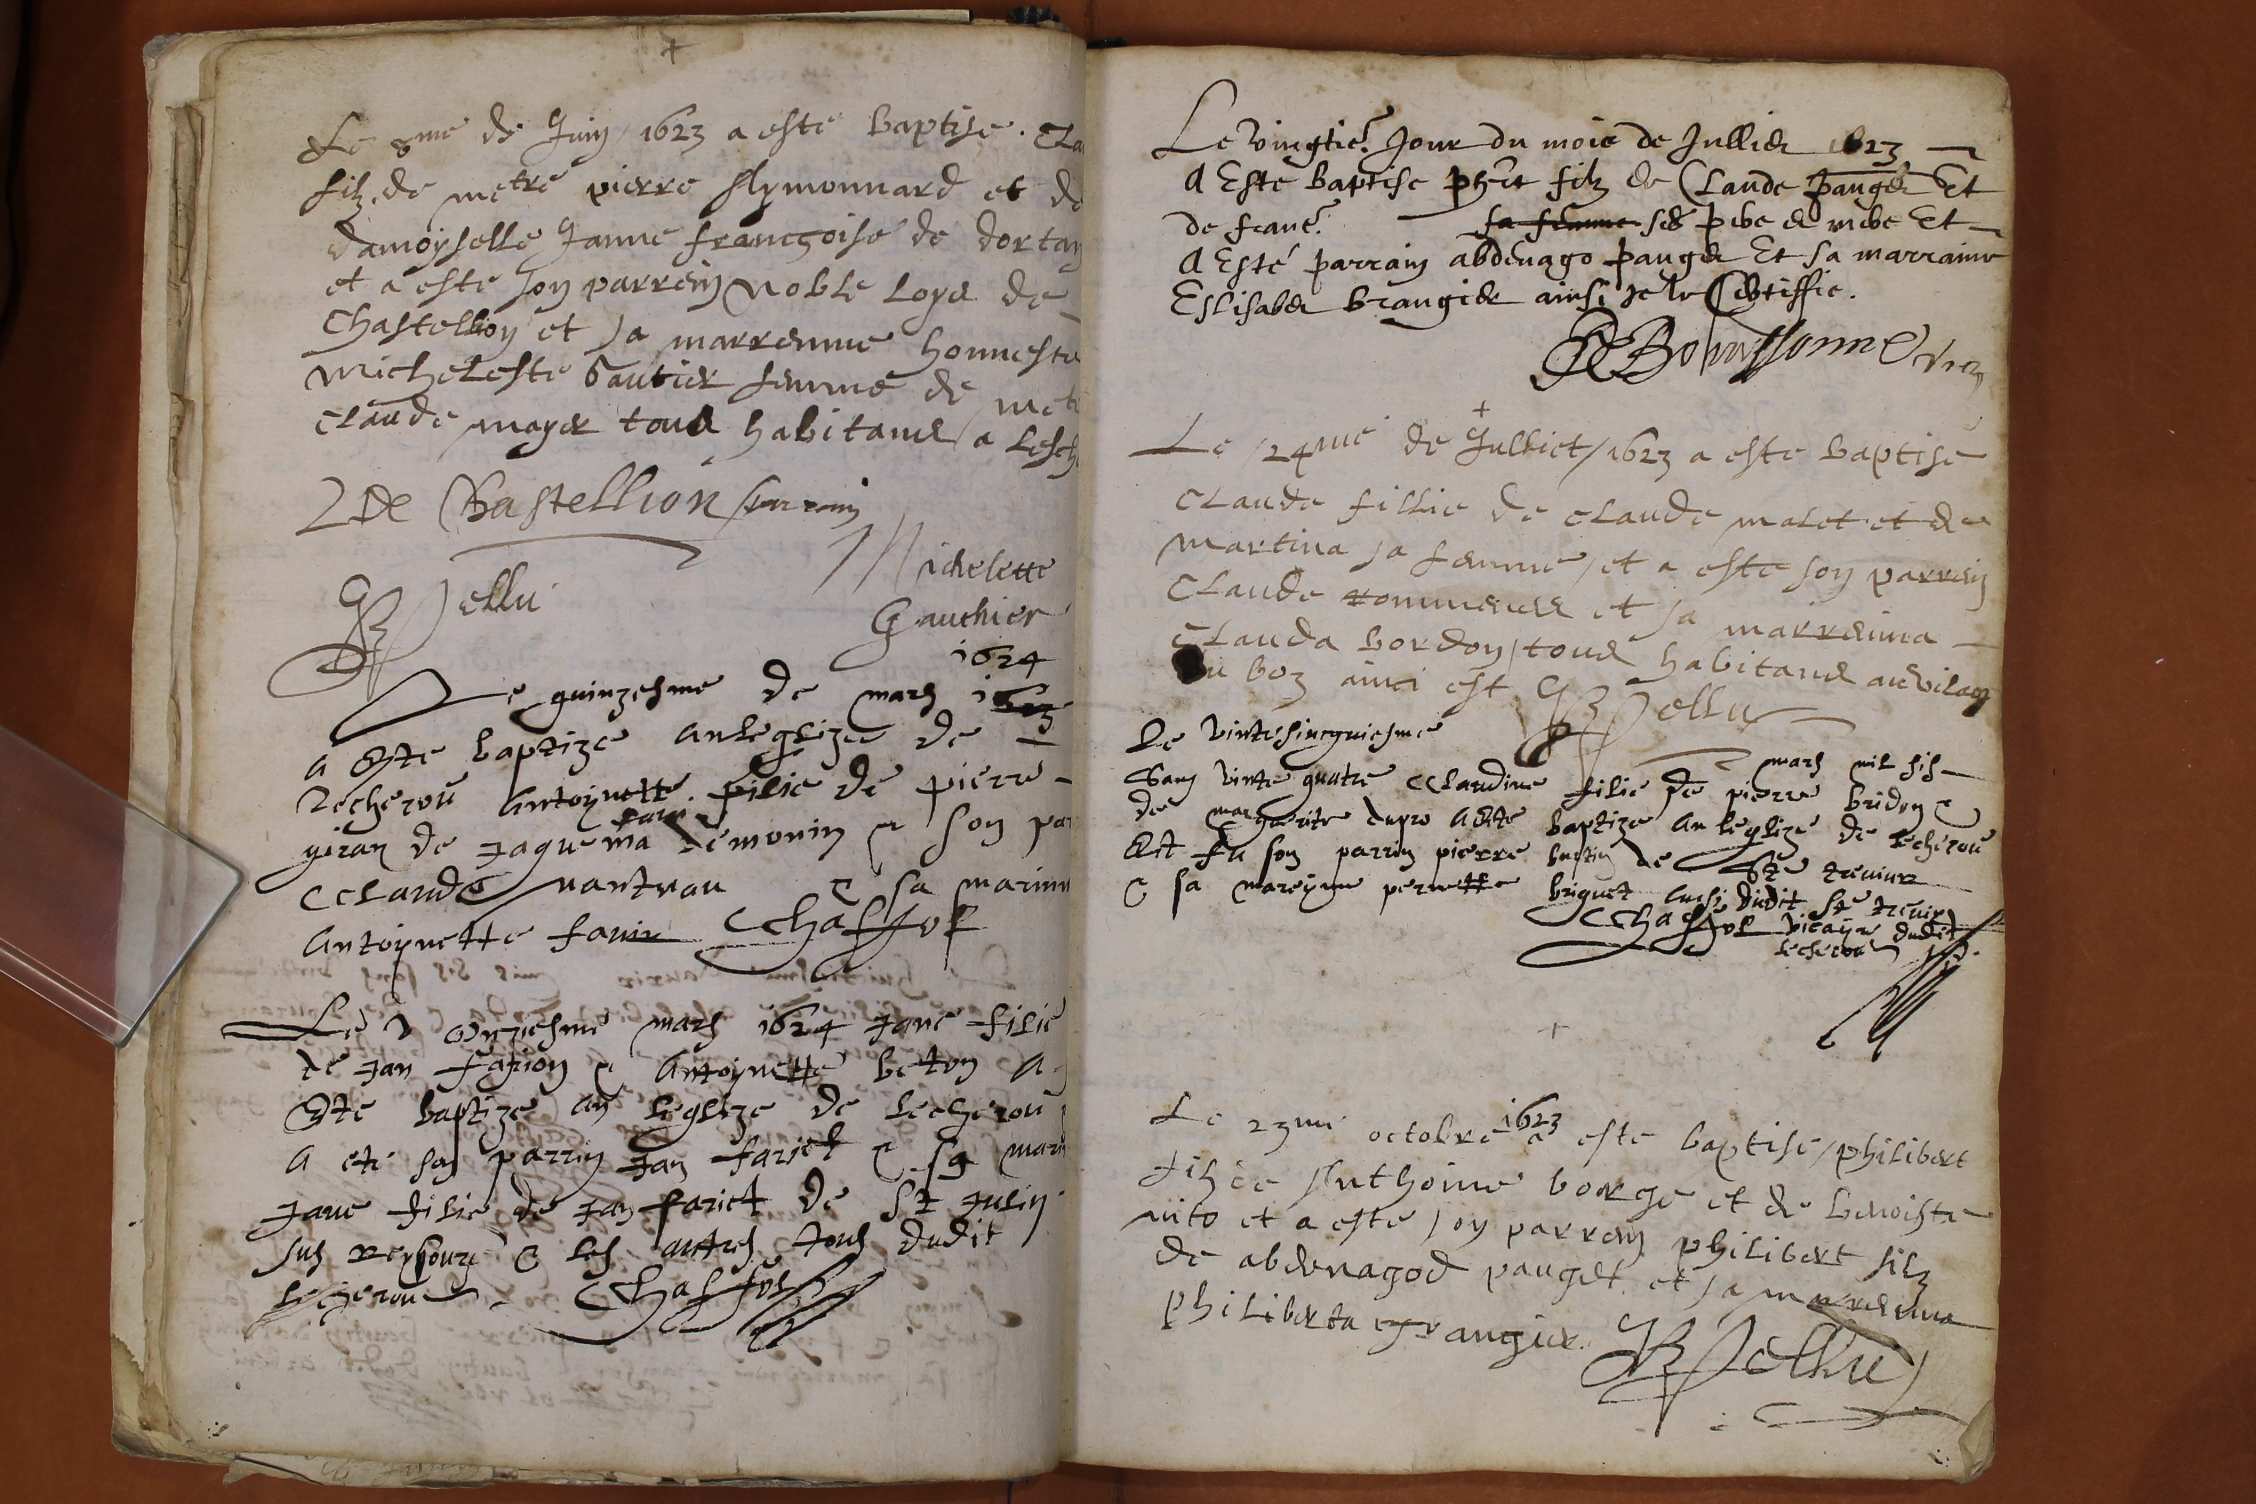 Le 8me de Juin 1623 a este baptise. Cla
filz de metre pierre Symonnard et de
damoyselle Janne francgoise de dortan
et a este son parrein noble Loys de
Chastellion et sa marrenne honneste
micheleste Gautier femme de met
claude mayet tous habitans a Lesch
L De Chastellion parrain
Michelette
Gauthier
Pellu
1624
Le quinzesme de mars 1623
a Este baptize an leglize de
lecherou Antoynette filie de pierre
de Jaquema demonin & son par
Cclaude nantuau & sa marinn
Antoynette favin Cchaffol
Le onziesme mars 1624 Jane filie
de Jan farion & Antoynette beton A
Este baptize an leglize de lecherou
A ete son parrin Jan fariet & sa mari
Jane filie de Jan fariet de St Julin
sus Reysouze & les autres tous dudit
lecherou Cchaffol
Le vingtie. Jour du mois de Jullies 1623
A Esté baptise phert filz de Claude pauget Et
de sa femme ses pere et mere Et
A Esté parrain abdenago pauget Et sa marraine
Eslisabet brangier ainsi Je le Certiffie.
+
Le 24me de Julliet 1623 a este baptise
Claude fillie de claude malet et de
martina sa femme et a este son parrein
Claude et sa marrenna
Clauda bordon tous habitans au vilage
du boz ainci est Pellu
Le vintesincquiesme mars mil sis
Sans vinte quatre Cclaudine filie de pierre bridon &
de margarite dupro a Este baptize an leglize de lecherou
Est fu son parrin pierre de Ste treviur
& sa mareynne pernette briguet ausi dudit Ste treviur
Cchaffol vicayre dudit
lecherou
+
Le 23me octobre 1623 a este baptise philibert
filz de Anthoine borge et de benoista
nito et a este son parrein philibert filz
de abdenagod pauget et sa marrenna
philiberta grangier.
Pellu